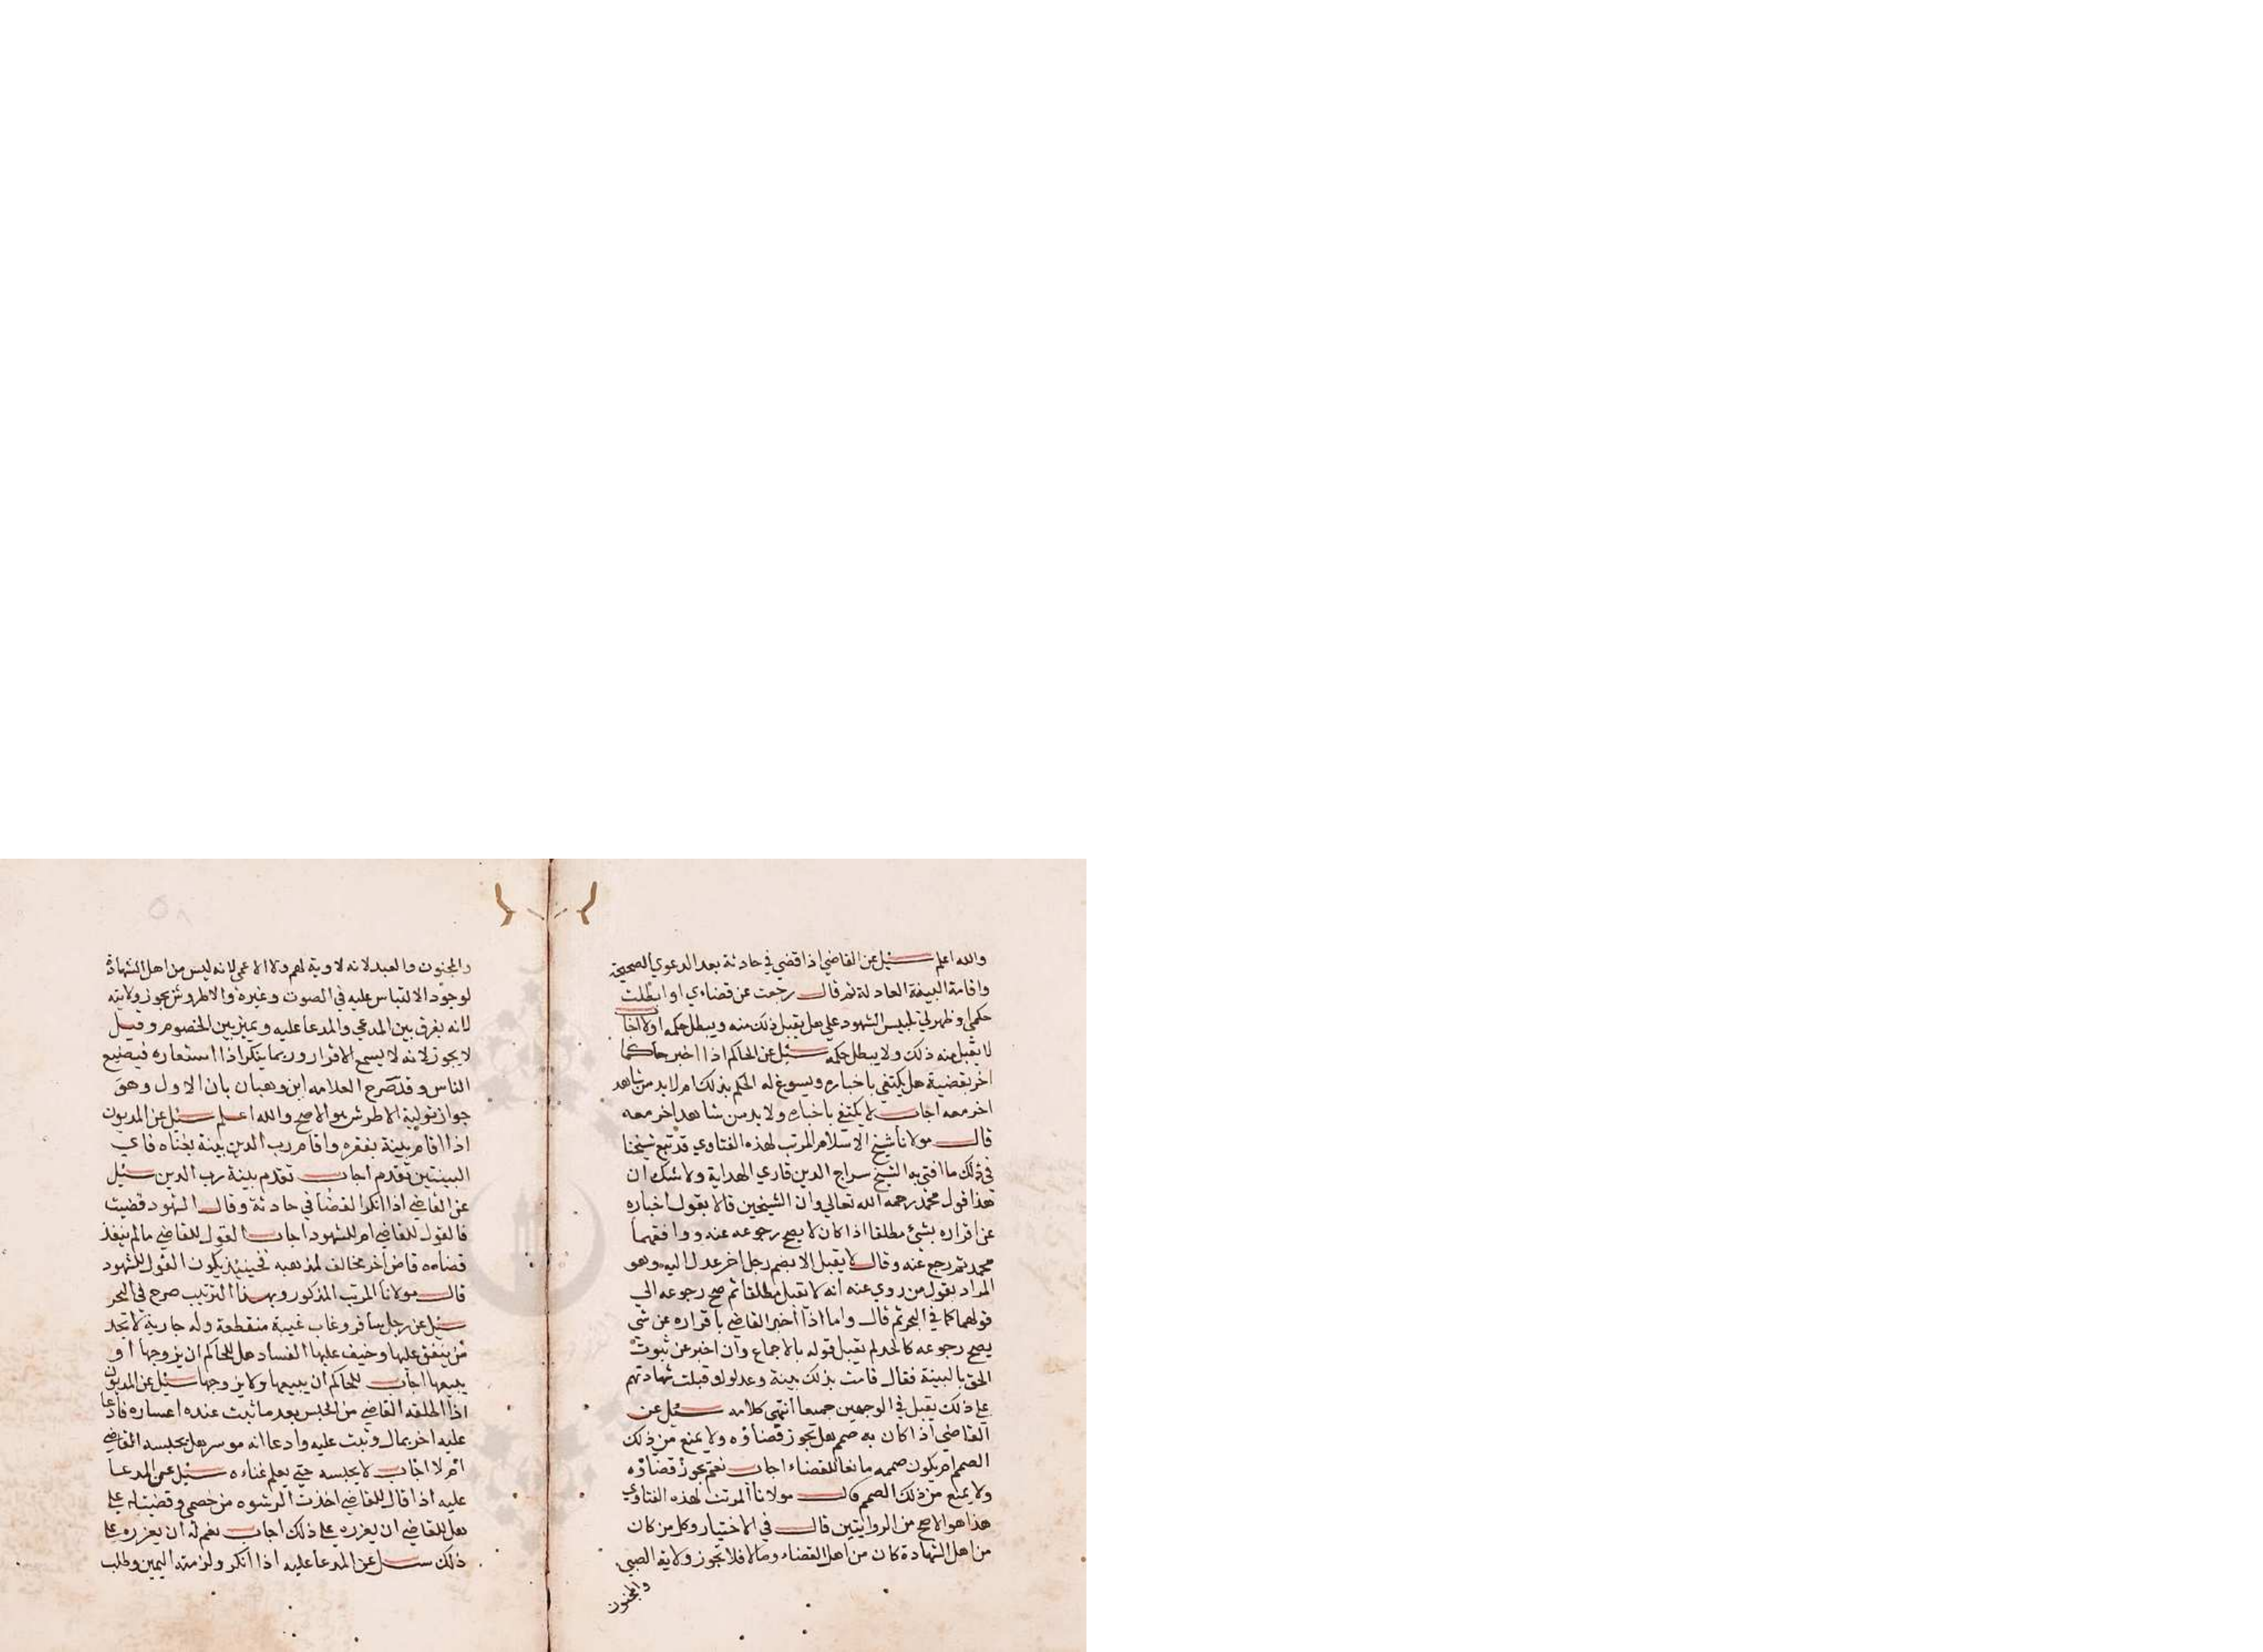 والله اعلم سئيل عن القاضي اذا قضي في حادثة بعد الدعوي الصحيحة
واقامة البينة العادلة ثم قال رجعت عن قضاءي او ابطلت
حكمي او ظهر لي تلبيس الشهود علي هل يقبل ذلك منه ويبطل حكمه او لا اجاب
لا يقبل منه ذلك ولا يبطل حكمه سئيل عن الحاكم اذا اخبر حاكما
اخر بقضية هل يكتفي باخباره ويسوغ له الحكم بذلك ام لا بد من شاهد
اخر معه اجاب لا يكتفي باخباره ولا بد من شاهد اخر معه
قال مولانا شيخ الاسلام المرتب لهذه الفتاوي قد تبع شيخنا
في ذلك ما افتي به الشيخ سراج الدين قاري الهداية ولا شك ان
هذا قول محمد رحمه الله تعالي وان الشيخين قالا بقول اخباره
عن اقراره بشئ مطلقا اذا كان لا يصح رجوعه عنه ووافقهما
محمد ثم رجع عنه وقال لا يقبل الا بضم رجل اخر عدل اليه وهو
المراد بقول من روي عنه انه لا تقبل مطلقا ثم صح رجوعه الي
قولهما كما في البحر ثم قال واما اذا اخبر القاضي باقراره عن شي
يصح رجوعه كالحد لم تقبل قوله بالاجماع وان اخبر عن ثبوت
الحق بالبينة فقال قامت بذلك بينة وعدلوا وقبلت شهادتهم
علي ذلك تقبل في الوجهين جميعا انتهي كلامه سئل عن
القاضي اذا كان به صمم هل تجوز قضاؤه ولا يمنع من ذلك
الصمم ام يكون صممه مانعا للقضاء اجاب نعم تجوز قضاؤه
ولا يمنع من ذلك الصمم قال مولانا المرتب لهذه الفتاوي
هذا هو الاصح من الروايتين قال في الاختيار وكل من كان
من اهل الشهادة كان من اهل القضاء ومالا فلا تجوز ولاية الصبي
والمجنون
والمجنون والعبد لانه لا وية لهم ولا الاعمي لانه ليس من اهل الشهادة
لوجود الالتباس عليه في الصوت وغيره والاطروش يجوز ولايته
لانه يفرق بين المدعي والمدعا عليه ويميز بين الخصوم وقيل
لا يجوز لانه لا يسمع الاقرار وربما ينكر اذا استعاره فيضيع
الناس وقد صرح العلامه ابن وهبان بان الاول وهو
جواز تولية الاطرش هو الاصح والله اعلم سئيل عن المديون
اذا اقام بينة بفقره واقام رب الدين بينة بغناه فاي
البينتين تقدم اجاب تقدم بينة رب الدين سئيل
عن القاضي اذا انكر القضا في حادثة وقال الشهود قضيت
فالقول للقاضي ام للشهود اجاب القول للقاضي مالم ينفذ
قضاءه قاض اخر مخالف لمذهبه فحينئذ يكون القول للشهود
قال مولانا المرتب المذكور وبهذا الترتيب صرح في البحر
سئيل عن رجل سافر وغاب غيبة منقطعة وله جارية لا تجد
من ينفق عليها وخيف عليها الفساد هل للحاكم ان يزوجها او
يبيعها اجاب للحاكم ان يبيعها ولا يزوجها سئيل عن المديون
اذا اطلقه القاضي من الحبس بعد ما ثبت عنده اعساره فادعا
عليه اخر بمال وثبت عليه وادعا انه موسر هل يحبسه القاضي
ام لا اجاب لا يحبسه حتي يعلم غناءه سئيل عن المدعا
عليه اذا قال للقاضي اخذت الرشوه من خصمي وقضيت له علي
هل للقاضي ان يعزره علي ذلك اجاب نعم له ان يعزره علي
ذلك سئل عن المدعا عليه اذا انكر ولزمته اليمين وطلب